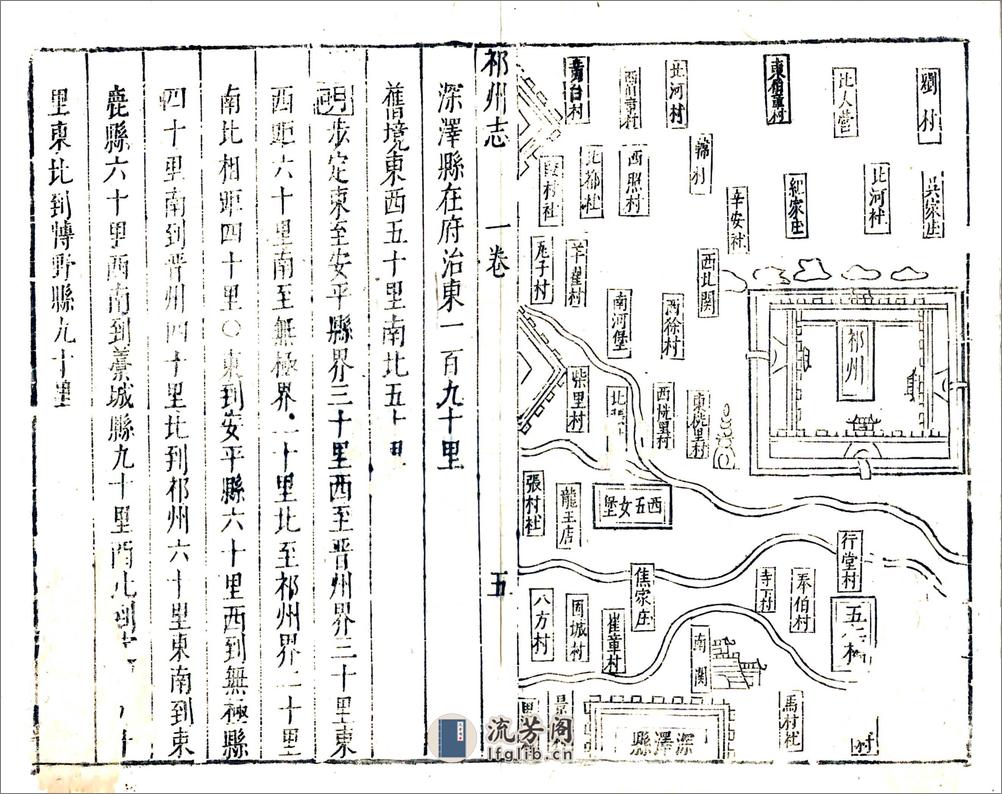 劉村
吳家庄
北人營
北河村
東伯章村
紀家庄
北河村
韓村
辛安社
西北関
西照村
北都社
段村社
羊崔村
南河堡
西徐村
柴里村
祁州
東侁里村
西侁里村
西五女堡
張村社
龍王店
行堂村
奉伯村
寺下村
焦家庄
崔章村
固城村
八方村
南関
馬村社
深澤縣
祁州志
一卷
五
深澤縣在府治東一百九十里
舊境東西五十里南北五十里
步定東至安平縣界三十里西至晋州界三十里東
西距六十里南至無極界二十里北至祁州界二十里
南北相距四十里○東到安平縣六十里西到無極縣
四十里南到晋州四十里北到祁州六十里東南到東
鹿縣六十里西南到藁城縣九十里西北到
里東北到愽野縣九十里
流芳阁
lfglib.cn